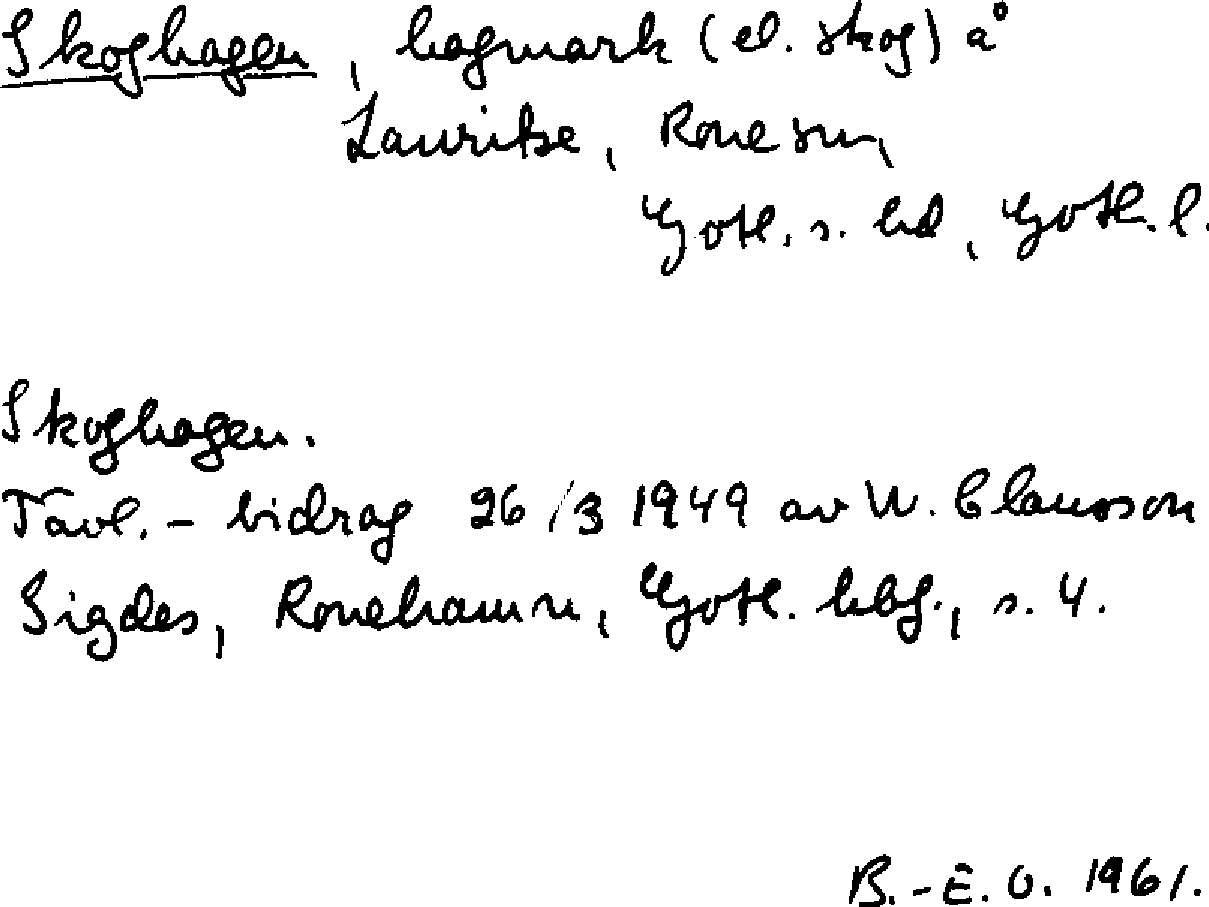 Skoghagen, hagmark (el. skog) å
Lauritse, Rone sn,
Gotl. s. hd, Gotl. l.
Skoghagen.
Tävl. - bidrag 26/3 1949 av W. Clausson
Sigdes, Ronehamn, Gotl. hbf., s. 4.
B.-E. O. 1961.